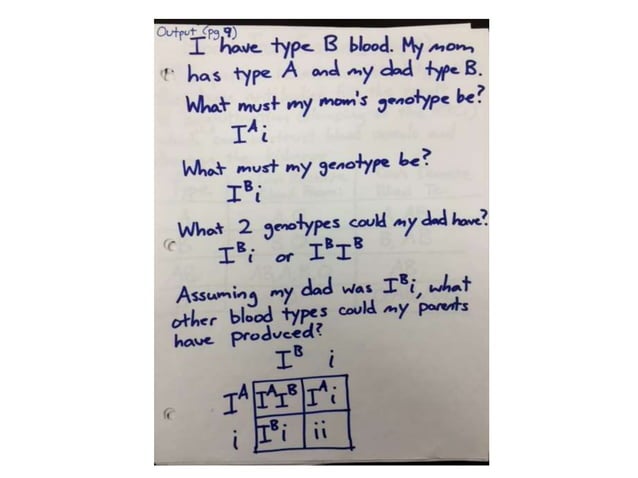 Output (pg.9)
I have type B blood. My mom
has type A and my dad type B.
What must my mom's genotype be?
Iᴬi
What must my genotype be?
Iᴮi
What 2 genotypes could my dad have?
Iᴮi or IᴮIᴮ
Assuming my dad was Iᴮi, what
other blood types could my parents
have produced?
Iᴮ i
Iᴬ IᴬIᴮ Iᴬi
i Iᴮi ii